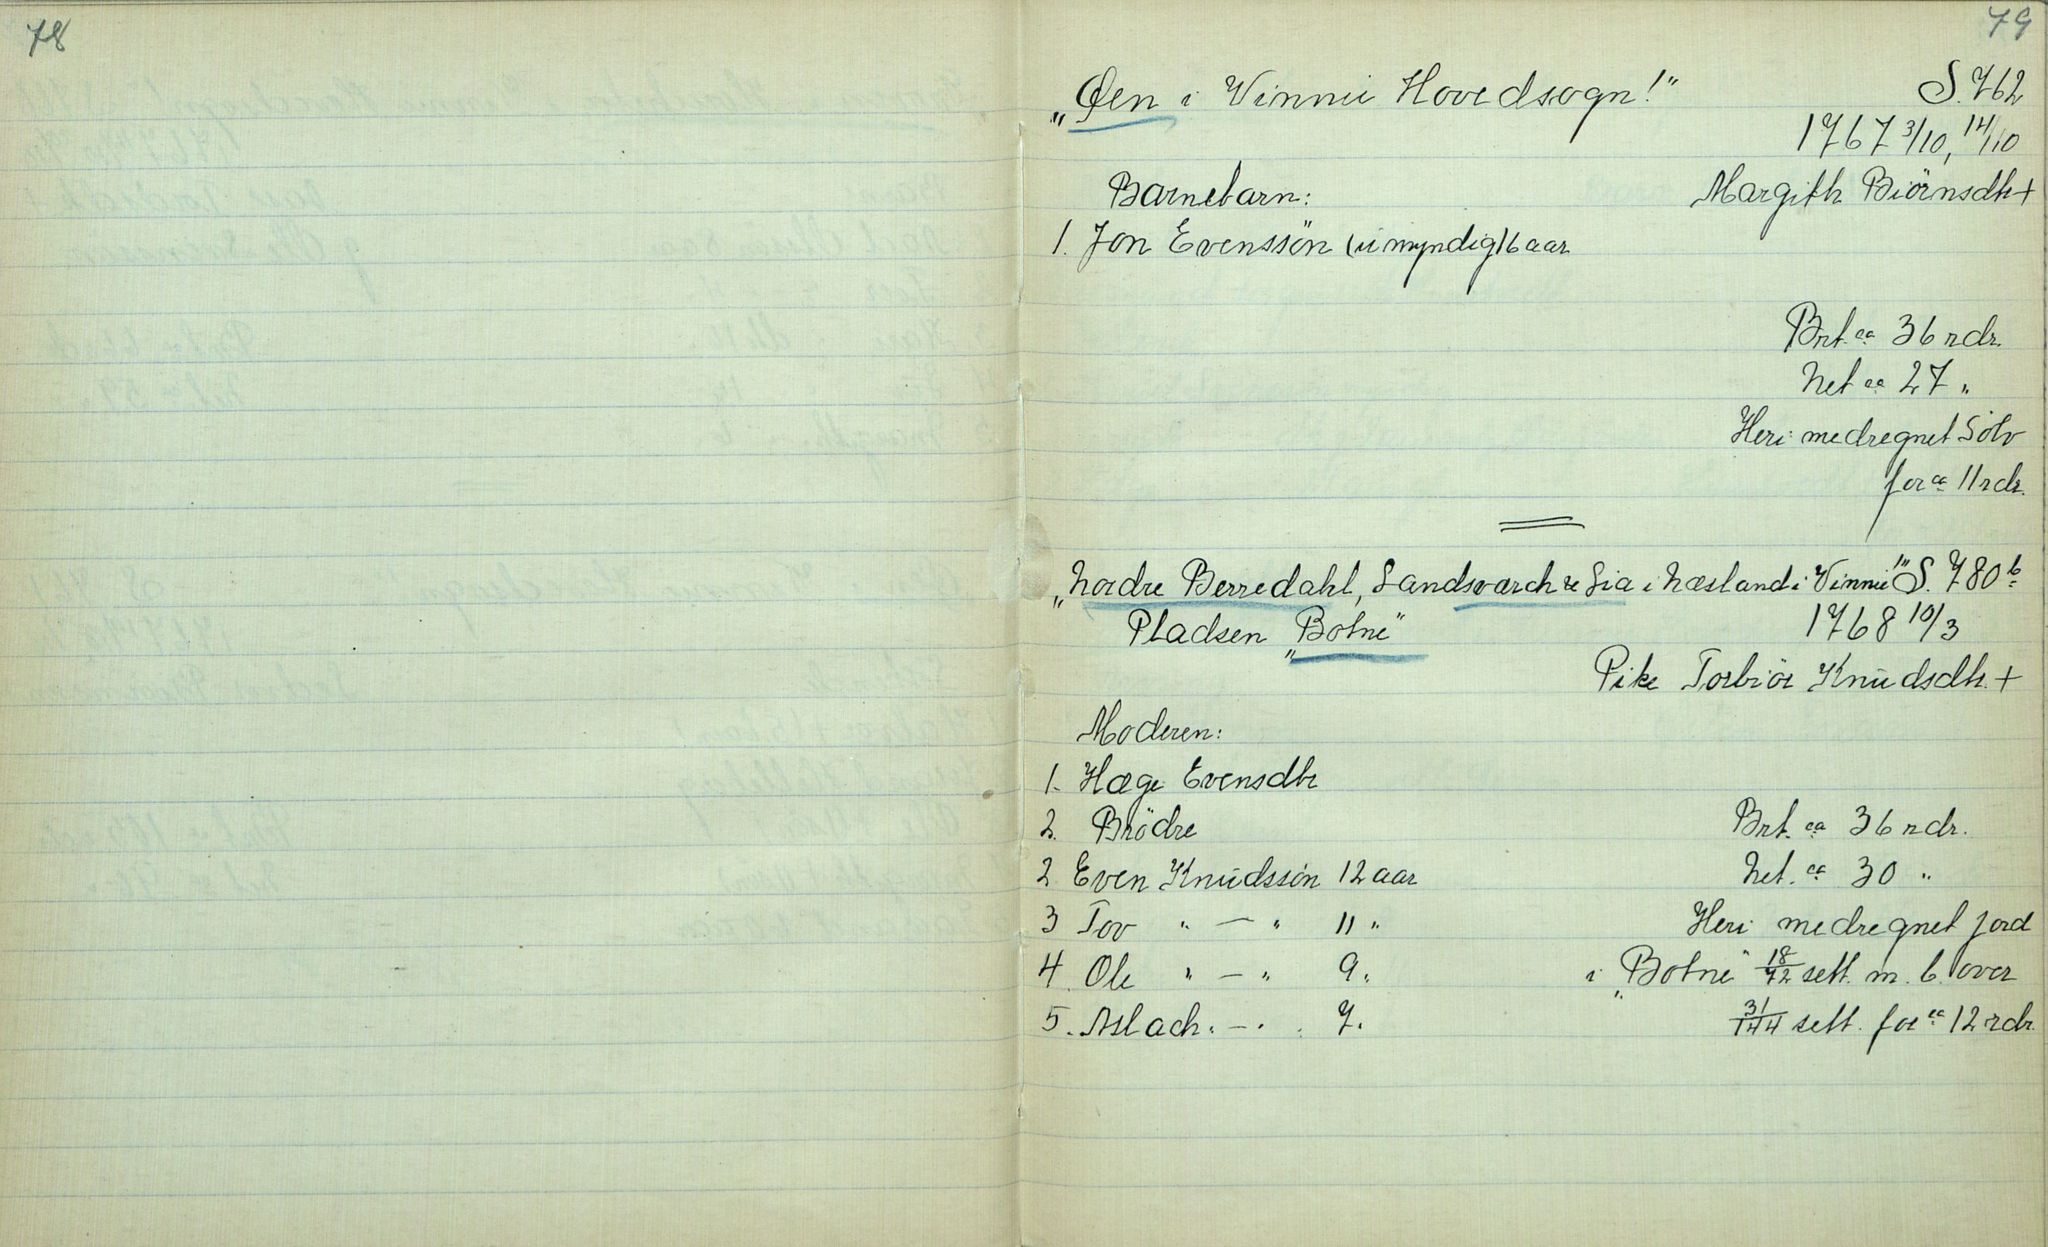 78
79
„Øen i Vinnie Hovedsogn!“ S. 762
1767 3/10, 14/10
Barnebarn: Margith Biörnsdtr +
1. Jon Evenssön (umyndig) 6 aar
Brt. ca 36 rdr.
Net ca 27 "
Heri medregnet Sölv
for ca 11 rdr.
„Nordre Berredahl, Landsværch & Lia i Næsland i Vinnie“ S. 780 b
Pladsen „Botne“ 1768 10/3
Pike Torbiör Knudsdtr. +
Moderen:
1. Hæge Evensdtr
2. Brödre Brt. ca 36 rdr.
2 Even Knudssön 12 aar Net. ca 30 "
3 Tov " — " 11 " Heri medregnet jord
4. Ole " — " 9. i „Botne“ 18/72 sett. m. b. over
5. Aslach. — . 7. 31/144 sett. for ca 12 rdr.